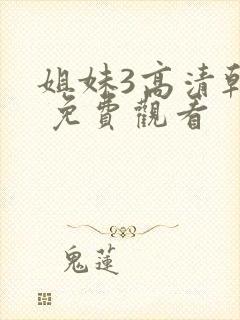 姐妹3高清
免費觀看
鬼蓮